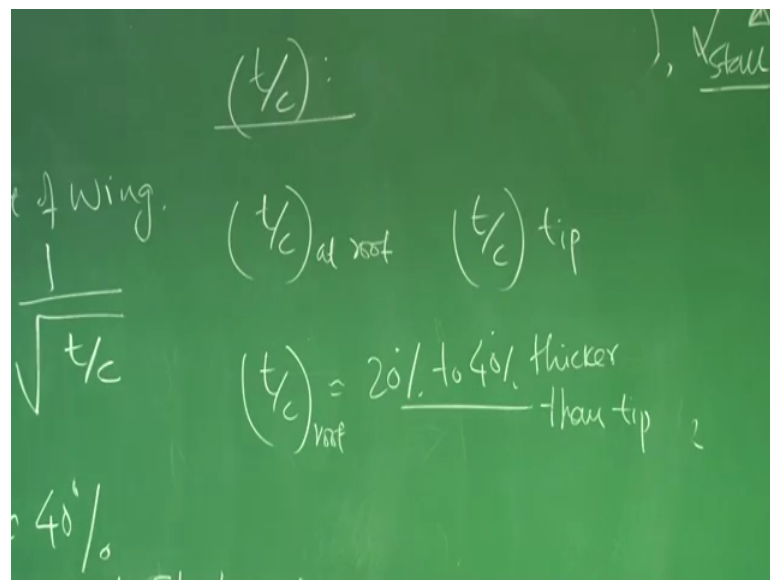 (t/c):
), α stall
of Wing.
1
√t/c
(t/c) at root (t/c) tip
(t/c) root = 20% to 40% thicker
than tip
40%